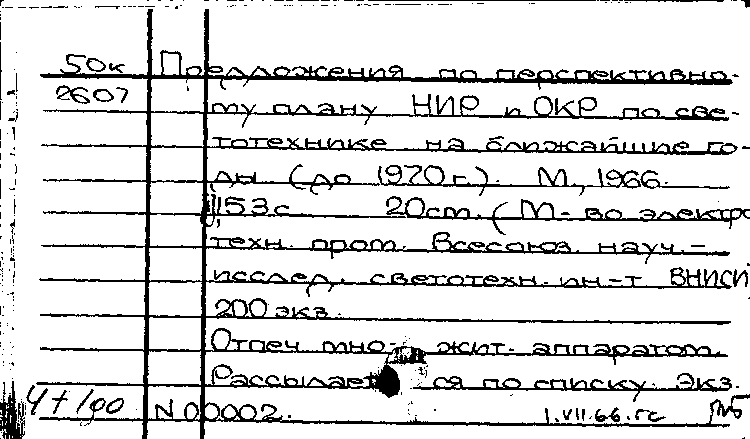 50к Предложения по перспективно-
2607 му плану НИР и ОКР по све-
тотехнике на ближайшие го-
ды (до 1970 г.). М., 1966.
153 с. 20 см. (М-во электро
техн. пром. Всесоюз. науч.-
исслед. светотехн. ин-т ВНИСИ
200 экз.
Отпеч. множит. аппаратом.
Рассылается по списку. Экз.
N 00002. 1.VII.66. гс